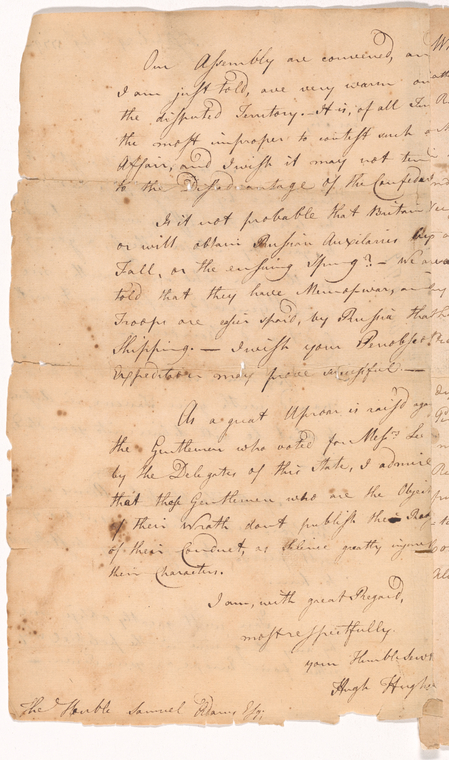 Our Assembly are convened, an
I am just told, are very warm on
the disputed Territory. It is, of all
the most improper to contest such
Affair, and I wish it may not ten
to the Disadvantage of the Confeder
Is it not probable that Britain
or will obtain Russian Auxilaries
Fall, or the ensuing Spring? — We are
told that they have Men of war, an
Troops are by Russia tha
Shipping. — I wish your Penobscot
Expedition may prove successful —
As a great Uproar is rais'd aga
the Gentlemen who voted for Messrs Lee
by the Delegates of this State, I admire
that those Gentlemen who are the Objec
of their Wrath dont publish their Reas
of their Conduct, as Silence greatly injure
their Characters.
I am, with great Regard,
most respectfully.
your Humble Serv
Hugh Hughe
The Honble Samuel Adams Esq;